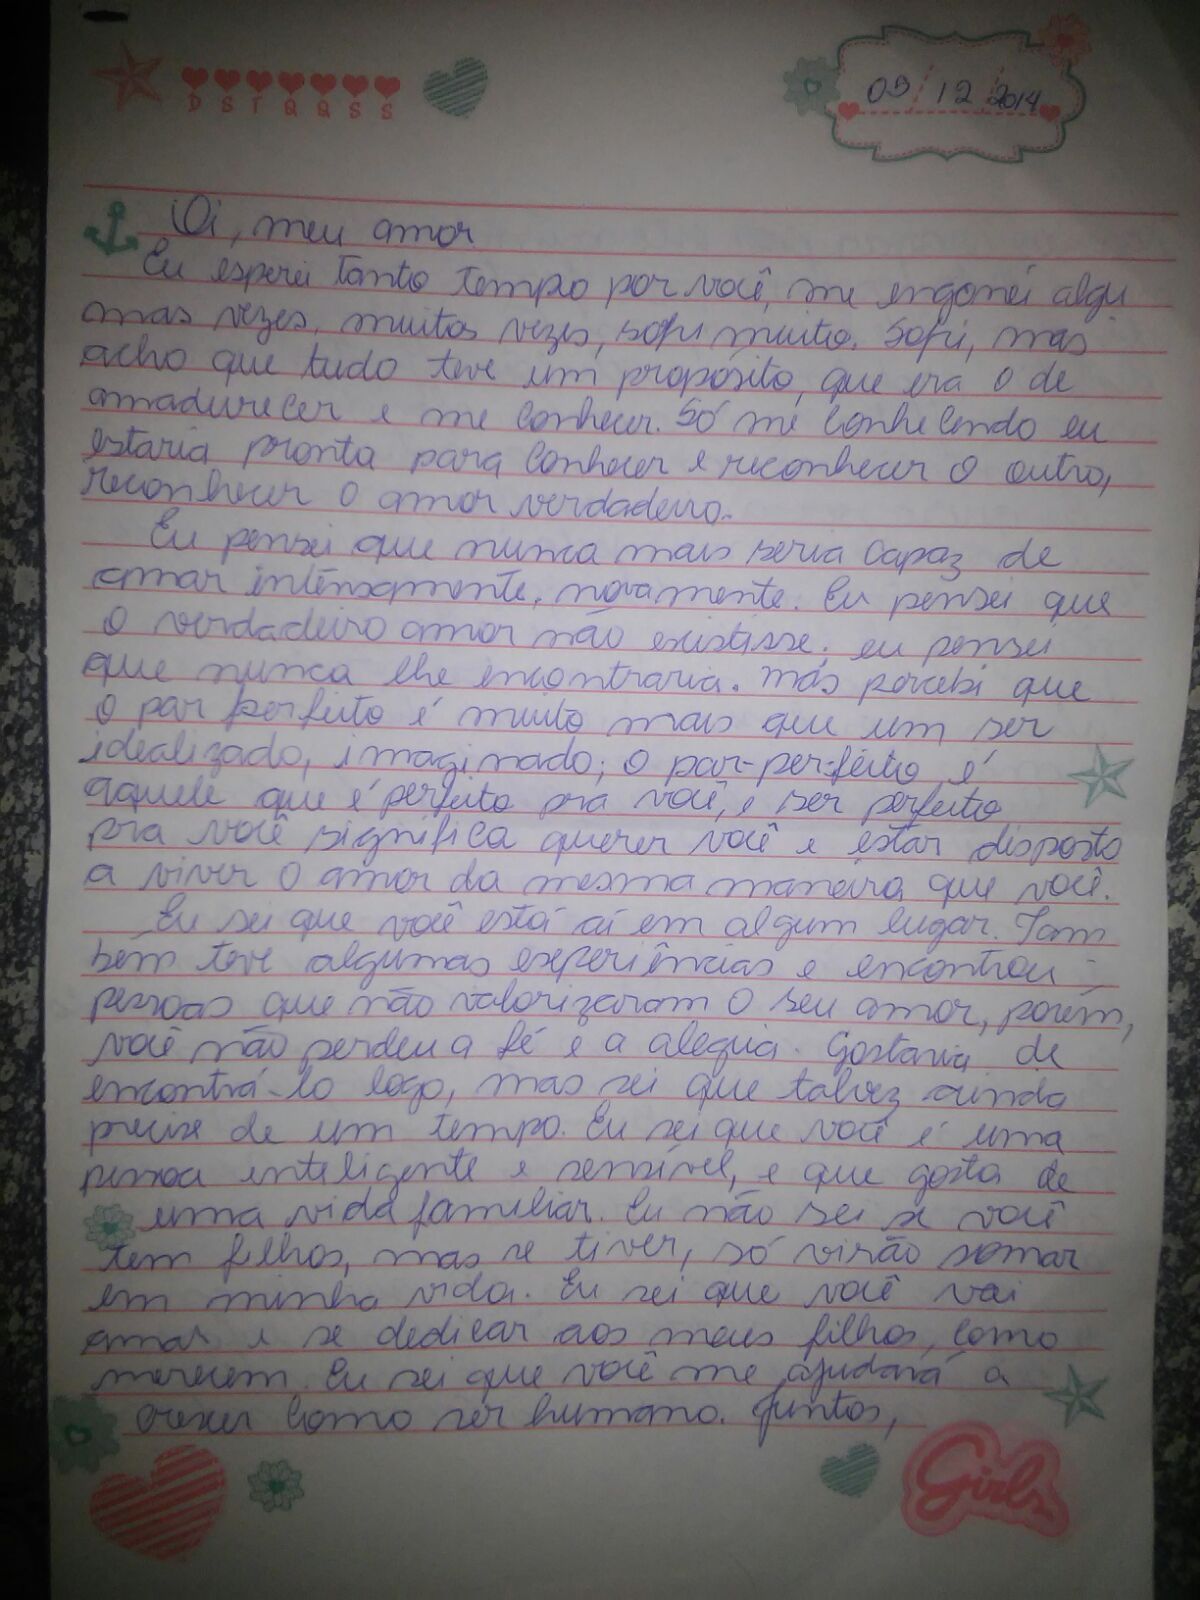 D S T Q Q S S
09/12/2014
Oi, meu amor
Eu esperei tanto tempo por você, me enganei algu
mas vezes, muitas vezes, sofri muito. Sofri, mas
acho que tudo teve um propósito, que era o de
amadurecer e me conhecer. Só me conhecendo eu
estaria pronta para conhecer e reconhecer o outro,
reconhecer o amor verdadeiro.
Eu pensei que nunca mais seria capaz de
amar intensamente, novamente. Eu pensei que
o verdadeiro amor não existisse, eu pensei
que nunca lhe encontraria. Mas percebi que
o par perfeito é muito mais que um ser
idealizado, imaginado; o par-perfeito é
aquele que é perfeito pra você, e ser perfeito
pra você significa querer você e estar disposto
a viver o amor da mesma maneira que você.
Eu sei que você está aí em algum lugar. Tam
bém teve algumas experiências e encontrou
pessoas que não valorizaram o seu amor, porém,
você não perdeu a fé e a alegria. Gostaria de
encontrá-lo logo, mas sei que talvez ainda
precise de um tempo. Eu sei que você é uma
pessoa inteligente e sensível, e que gosta de
uma vida familiar. Eu não sei se você
tem filhos, mas se tiver, só virão somar
em minha vida. Eu sei que você vai
amar e se dedicar aos meus filhos, como
merecem. Eu sei que você me ajudará a
crescer como ser humano. Juntos,
Girls